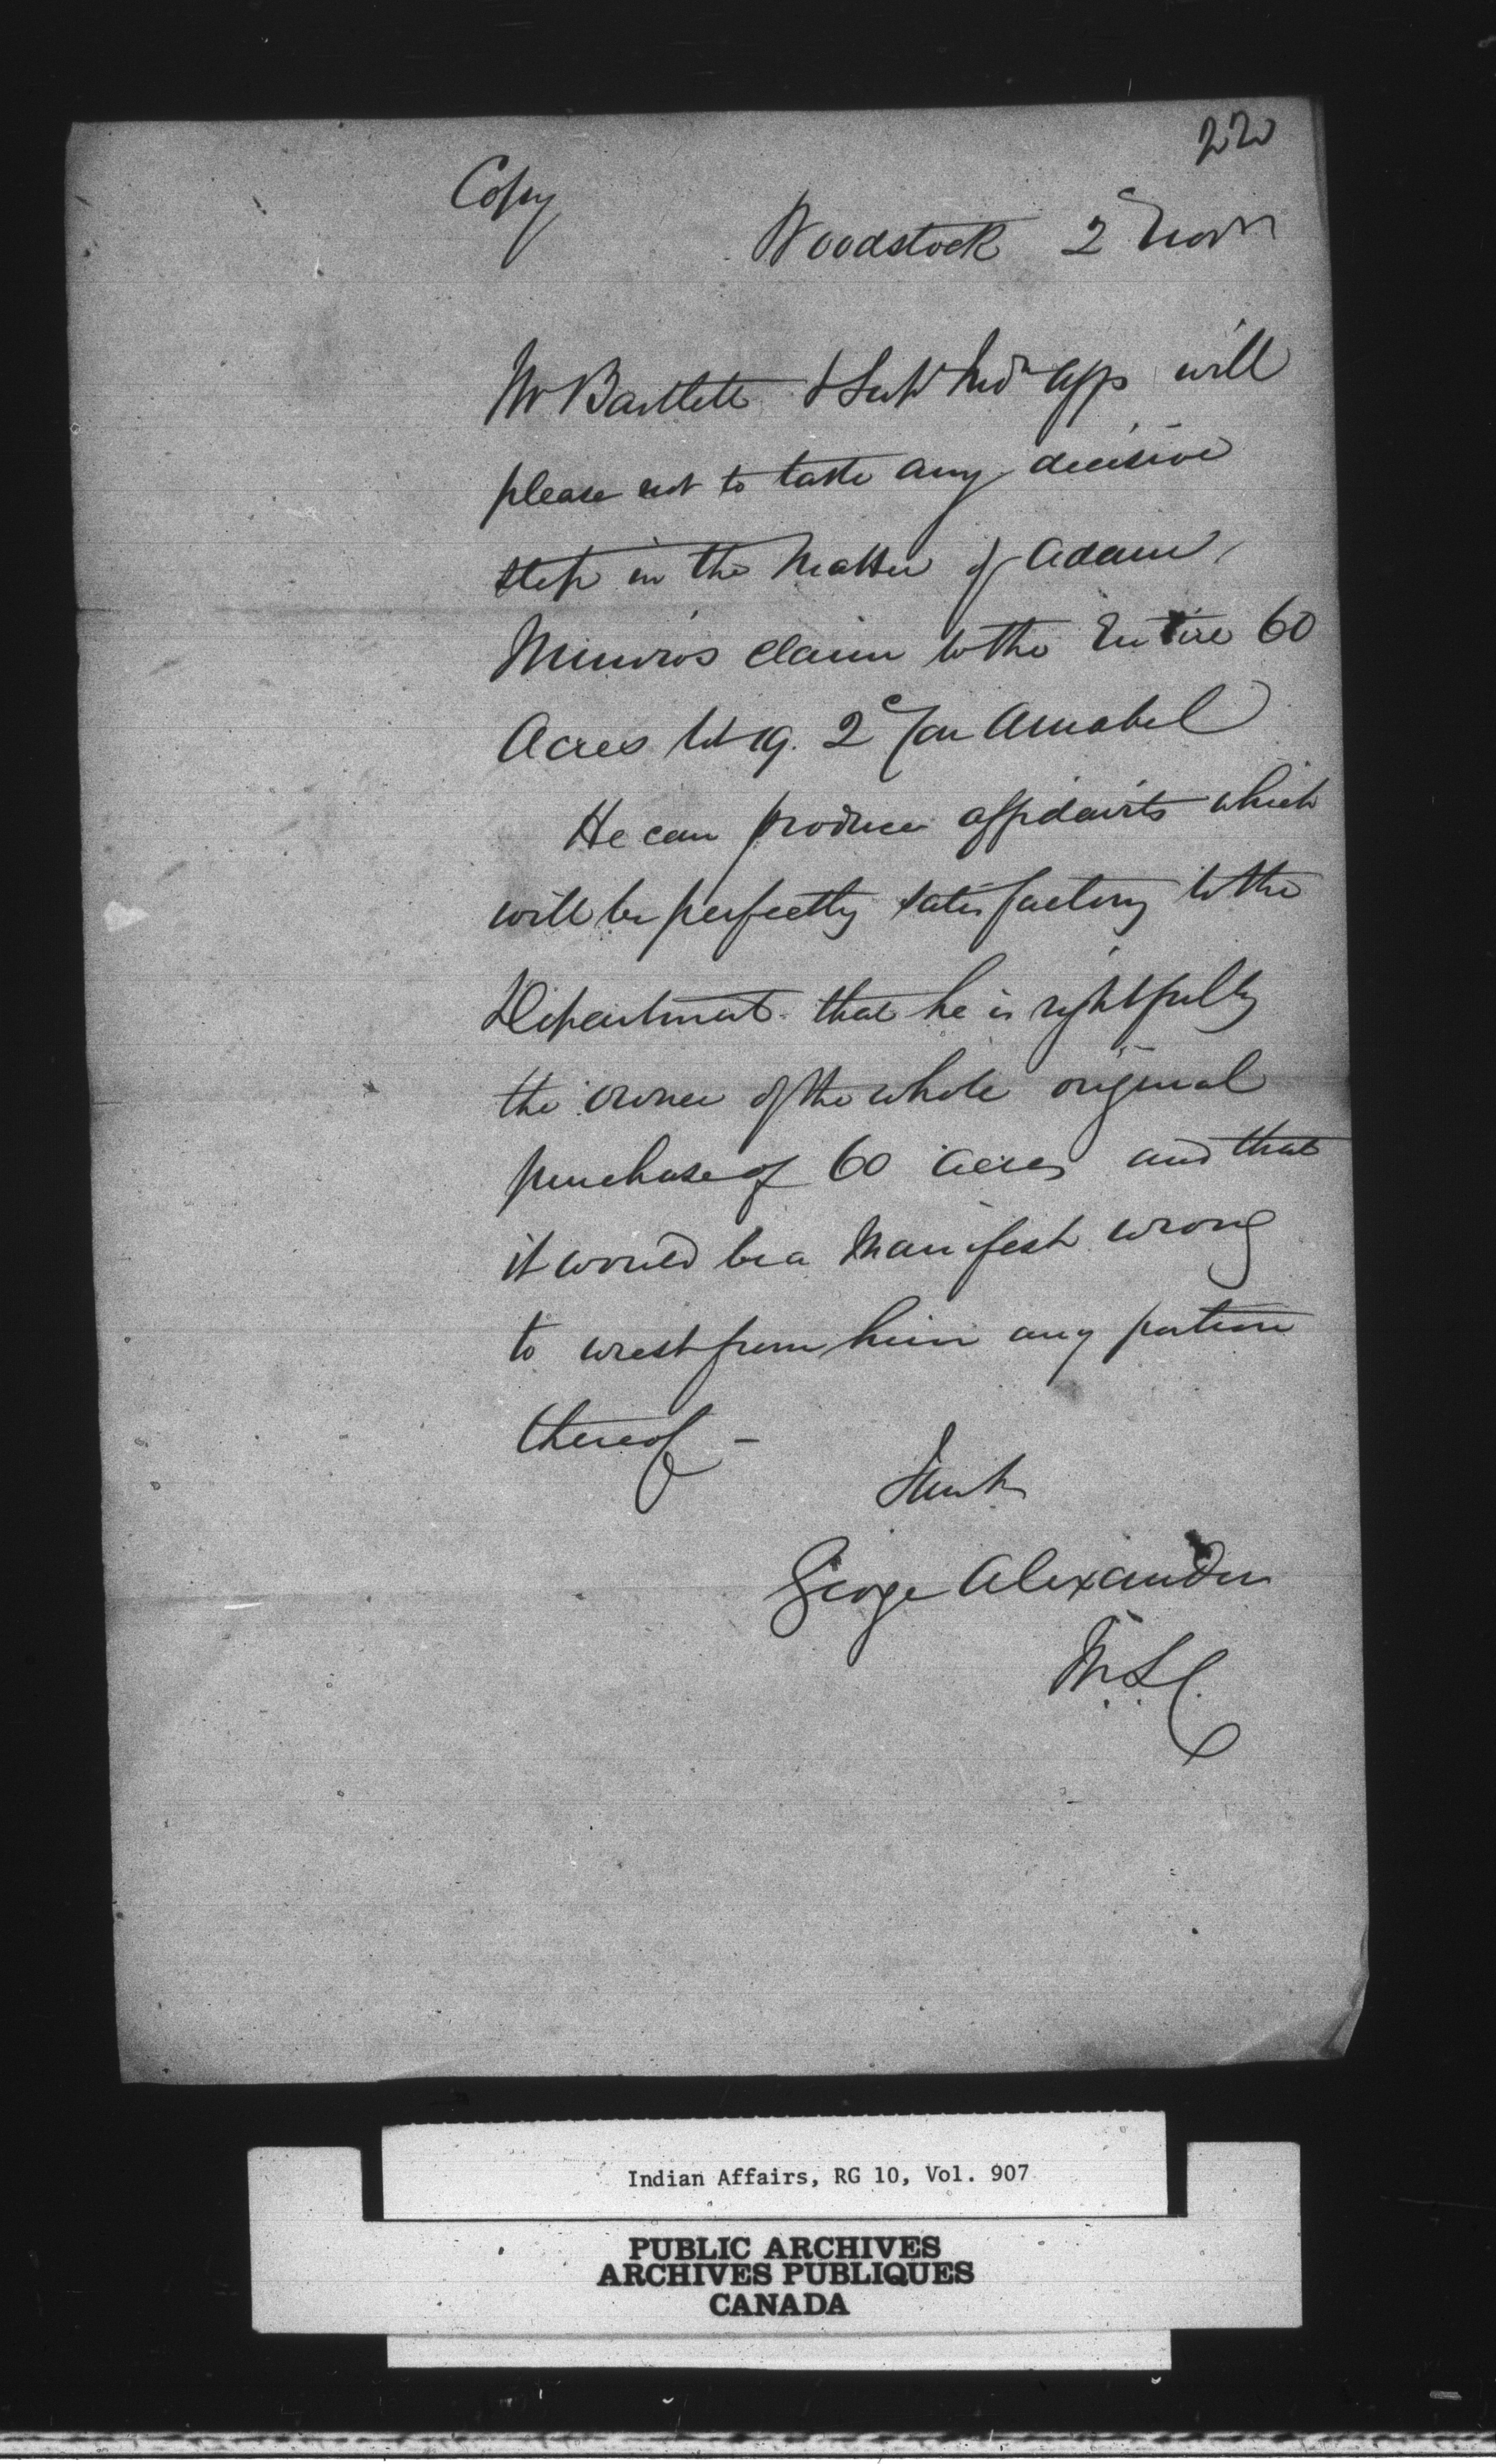 220
Copy
Woodstock 2 Novr
Mr Bartlett Supt Indn Affs will
please not to take any decisive
step in the matter of Adam
Munro's claim to the Entire 60
Acres lot 19. 2d Con Amabel
He can produce affidavits which
will be perfectly satisfactory to the
Department that he is rightfully
the owner of the whole original
purchase of 60 acres and that
it would be a manifest wrong
to wrest from him any portion
thereof -
George Alexander
M.L.C.
Indian Affairs, RG 10, Vol. 907
PUBLIC ARCHIVES
ARCHIVES PUBLIQUES
CANADA